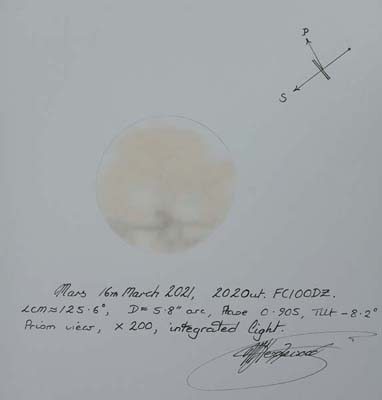 P
S
Mars 16th March 2021, 2020ut. FC100DZ.
LCM≈125.6°, D=5.8" arc, Phase 0.905, Tilt -8.2°
Prism view, x200, integrated light.